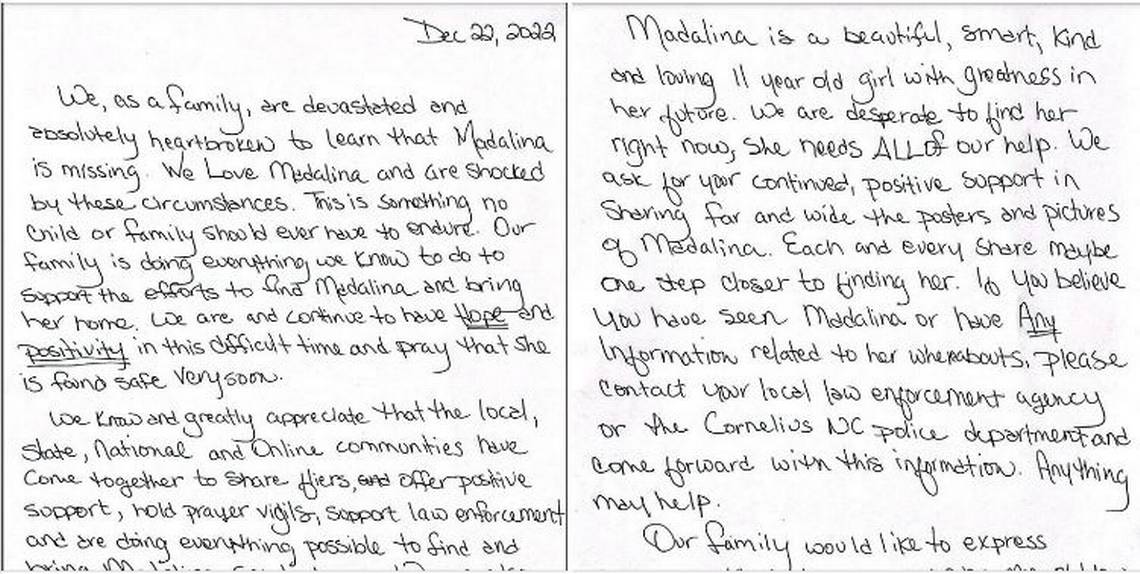 Dec 22, 2022
We, as a family, are devastated and
absolutely heartbroken to learn that Madalina
is missing. We Love Madalina and are shocked
by these circumstances. This is something no
Child or family should ever have to endure. Our
family is doing everything we know to do to
support the efforts to find Madalina and bring
her home. We are and continue to have Hope and
positivity in this difficult time and pray that she
is found safe very soon.
We know and greatly appreciate that the local,
State, National and Online communities have
Come together to share fliers, and offer positive
support, hold prayer vigils, support law enforcement
and are doing everything possible to find and
bring Madalina
Madalina is a beautiful, smart, kind
and loving 11 year old girl with greatness in
her future. We are desperate to find her
right now, she needs ALL of our help. We
ask for your continued, positive support in
Sharing far and wide the posters and pictures
of Madalina. Each and every share maybe
one step closer to finding her. If you believe
you have seen Madalina or have Any
Information related to her whereabouts, please
contact your local law enforcement agency
or the Cornelius NC police department and
come forward with this information. Anything
may help.
Our family would like to express